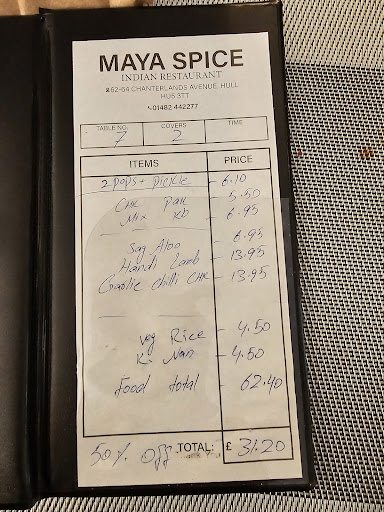 MAYA SPICE
INDIAN RESTAURANT
62-64 CHANTERLANDS AVENUE, HULL
HU5 3TT
01482 442277
TABLE NO. COVERS TIME
7 2
ITEMS PRICE
2 Pops + Pickle - 6.10
CHK Pak - 5.50
Mix Kb - 6.95
Sag Aloo 6.95
Handi Lamb - 13.95
Garlic chilli CHK - 13.95
veg Rice - 4.50
K. Nan - 4.50
Food total - 62.40
50% off TOTAL: £ 31.20